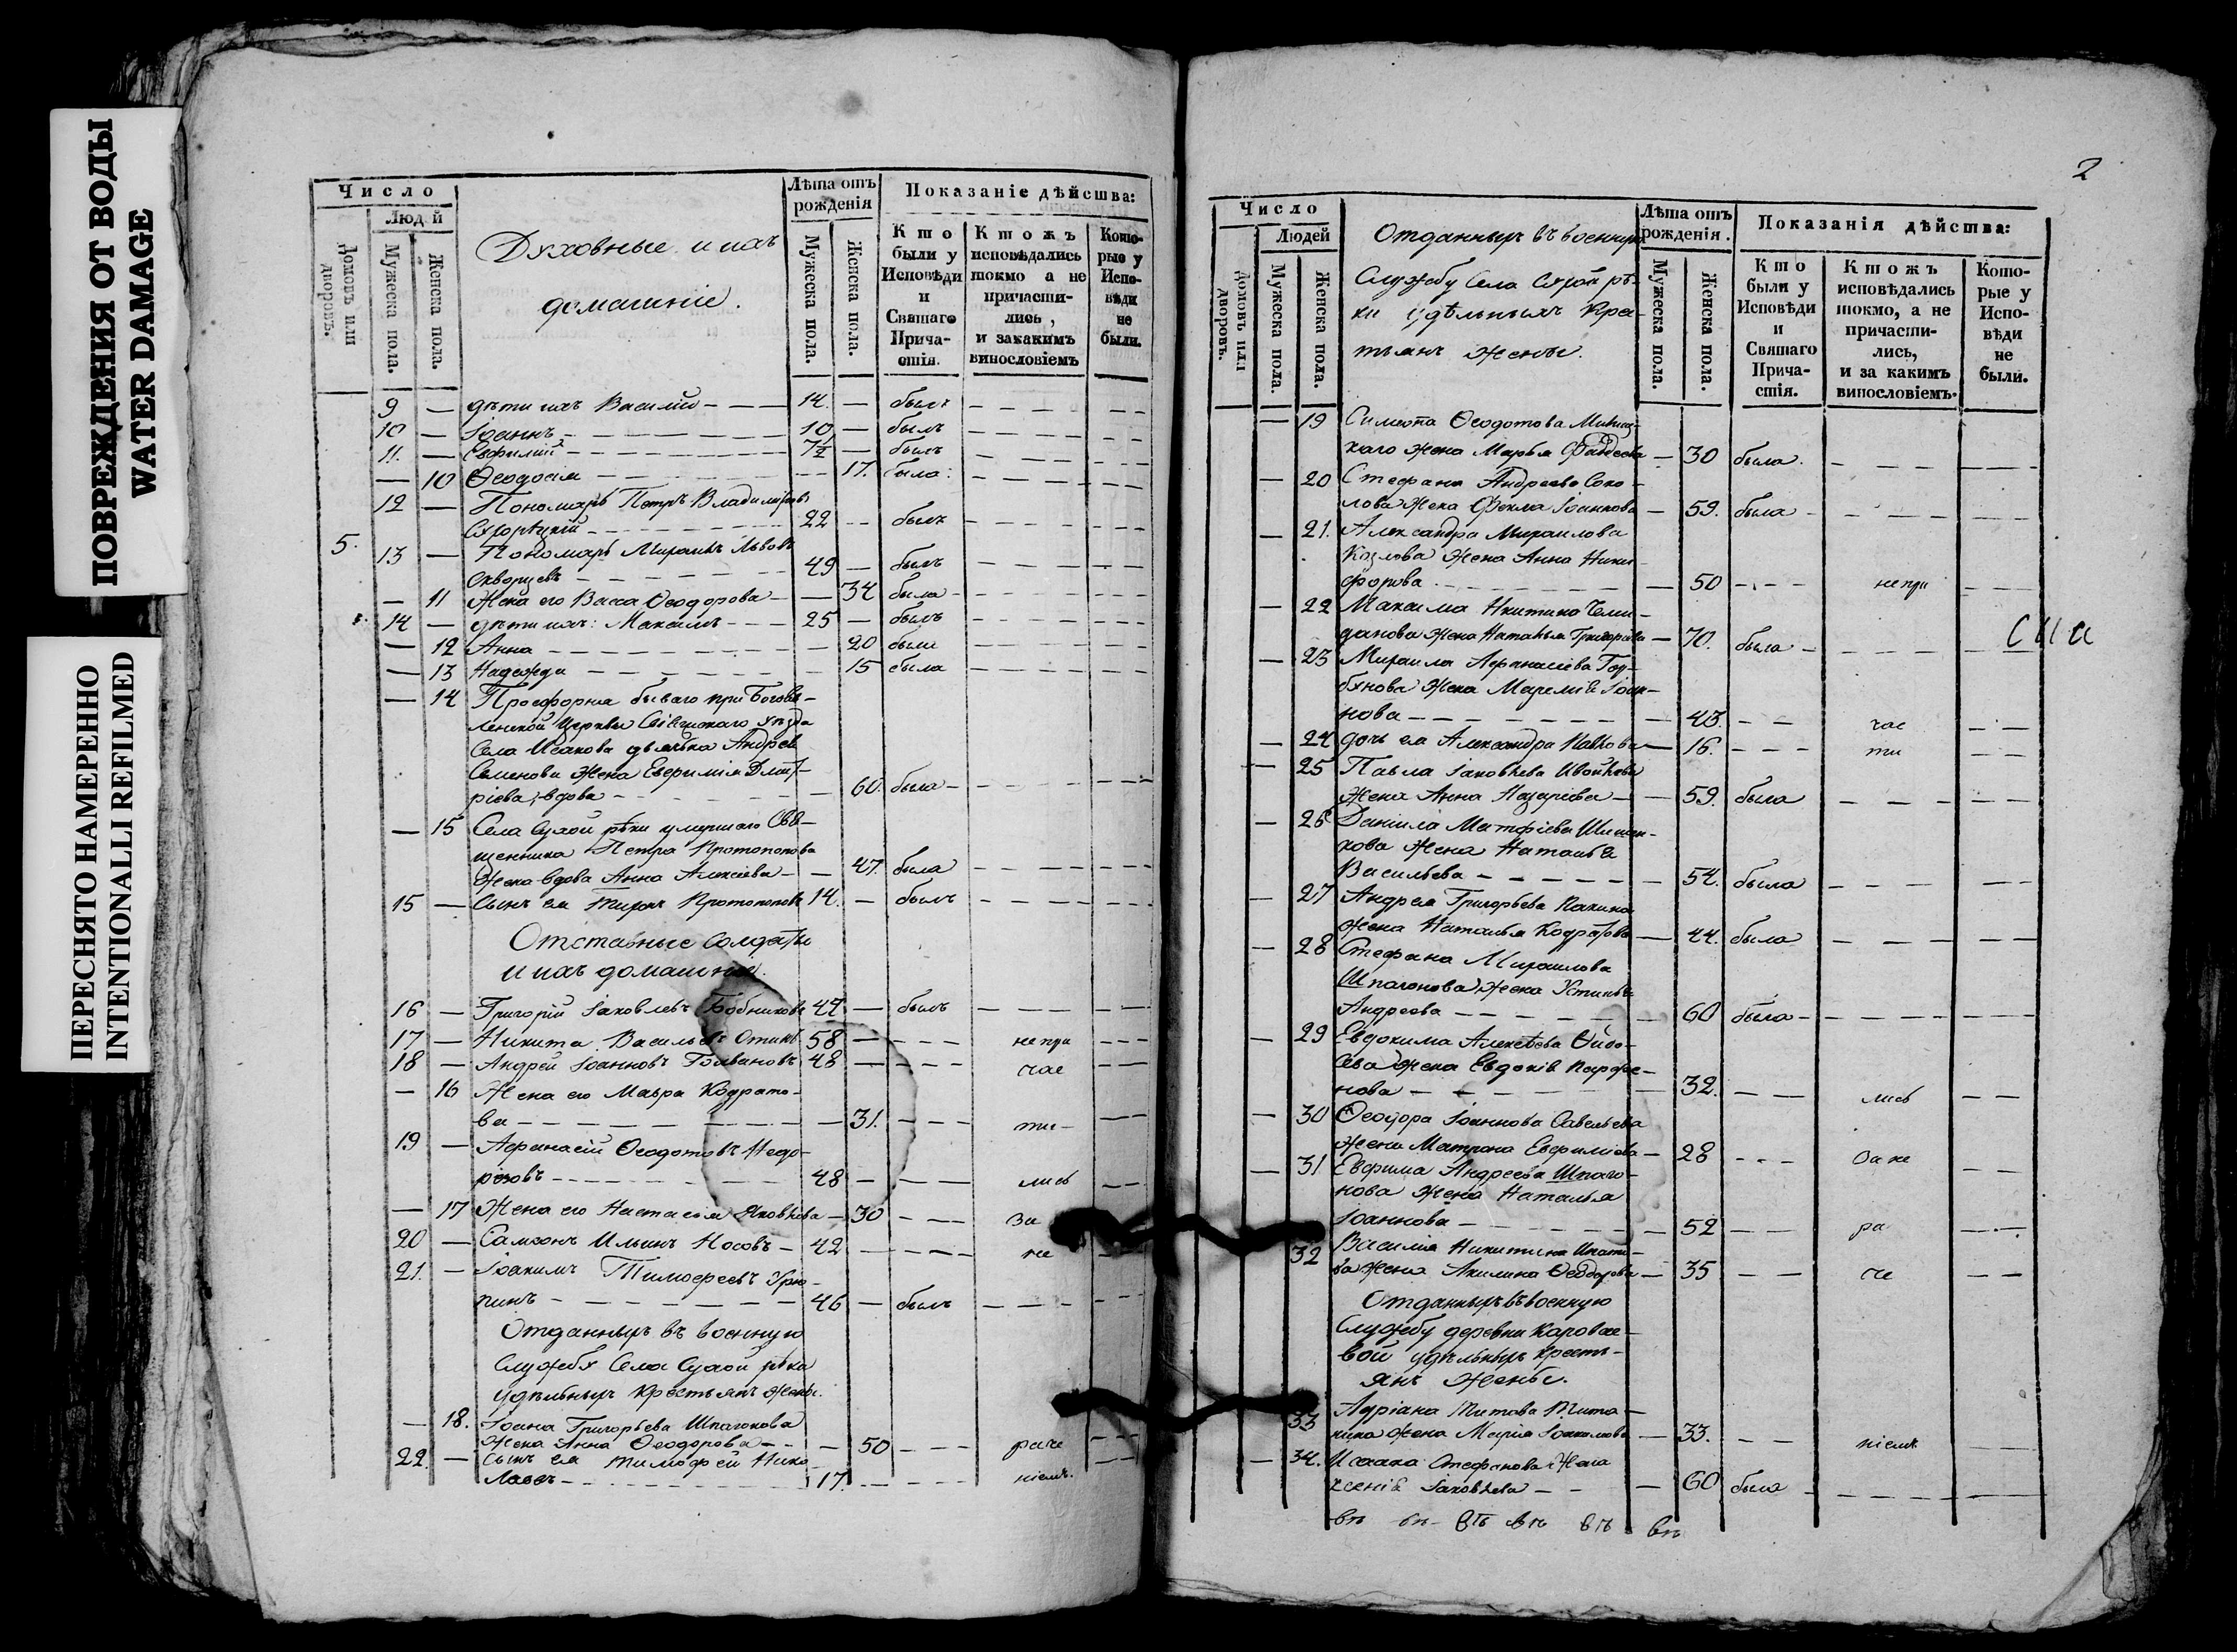 ПОВРЕЖДЕНИЯ ОТ ВОДЫ
WATER DAMAGE
ПЕРЕСНЯТО НАМЕРЕННО
INTENTIONALLI REFILMED
Число
Людей
Домовъ или дворовъ.
Мужеска пола.
Женска пола.
Духовные и ихъ
домашніе.
Лѣта отъ рожденія
Мужеска пола.
Женска пола.
Показаніе дѣйства:
Кто были у Исповѣди и Святаго Причастія.
Ктожъ исповѣдались токмо а не причастились, и закакимъ винословіемъ
Которые у Исповѣди не были.
9 — дѣти ихъ Василій — 14. — былъ
10 — Іоаннъ — 10 — былъ
11. — Евфимій — 7½ — былъ
— 10 Ѳеодосія — 17. была
12 — Пономарь Петръ Владиміровъ
22 — былъ
5. 13 — Пономарь Михаилъ Львовъ
Скворцевъ — 49 — былъ
— 11 Жена его Васса Ѳеодорова — 34 была
14 — дѣти ихъ: Максимъ — 25 — былъ
— 12 Анна — 20 была
— 13 Надежда — 15 была
— 14 Просфорня бываго при Богояв-
ленской Церкви уѣзда
Села дьячка Андрея
Семенова жена Евфимія Дмит-
ріева, вдова — 60. была
— 15 Села Сухой рѣки умершаго Свя-
щенника Петра Протопопова
Жена вдова Анна Алексѣева — 47. была
15 — Сынъ ея Протопоповъ 14. — былъ
Отставные солдаты
и ихъ домашніе.
16 — Григорій Іаковлевъ Бобниковъ 47 — былъ
17 — Никита Васильевъ 58 — непри
18 — Андрей Іоанновъ 48 — час
— 16 Жена его Мавра Кодрато-
ва — 31. — ти
19 — Афанасій Ѳеодотовъ
48 — лись
— 17 Жена его Настасья Яковлева — 30 — За
20 — Самсонъ Ильинъ Носовъ — 42 — не
21. — Іоакимъ Тимофеевъ Урю-
пинъ — 46 — былъ
Отданныхъ въ военную
службу Села Сухой рѣки
удѣльныхъ крестьянъ жены.
— 18. Іоанна Григорьева Шпагонова
Жена Анна Ѳеодорова — 50 — раче
22. — Сынъ ея Тимофей Нико-
лаевъ — 17. — ніемъ.
2
Число
Людей
Домовъ или дворовъ.
Мужеска пола.
Женска пола.
Отданныхъ въ военную
Службу Села Сухой рѣ-
ки удѣльныхъ Крес-
тьянъ жены.
Лѣта отъ рожденія.
Мужеска пола.
Женска пола.
Показанія дѣйства:
Кто были у Исповѣди и Святаго Причастія.
Ктожъ исповѣдались токмо, а не причастились, и за какимъ винословіемъ.
Которые у Исповѣди не были.
— 19 Ѳеодотова
жена Марья Фаддеева — 30 была.
— 20 Стефана Андреева Соко-
лова жена Фекла Іоаннова — 59. была
— 21. Александра Михаилова
Козлова жена Анна Ники-
форова — 50 — непри
— 22 Максима Никитина Чемо-
данова жена Наталья Григорьева — 70. была
— 23 Михаила Афанасіева Гор-
бунова жена Іоан-
нова — 43. — час
— 24 дочь ея Александра — 16. — ти
— 25 Павла Іаковлева
жена Анна Назарьева — 59. была
— 26 Даніила Матфіева
жена Наталья
Васильева — 54. была
— 27 Андрея Григорьева
жена Наталья Кодратова — 44. была
— 28 Стефана Михаилова
Шпагонова жена Устинья
Андреева — 60 была
— 29 Евдокима Алексѣева
жена Евдокія Парфе-
нова — 32. — лись
— 30 Ѳеодора Іоаннова Савельева
жена Матрона Евфиміева — 28 — За не
— 31 Евфима Андреева Шпаго-
нова жена Наталья
Іоаннова — 52 — ра
32 Василія Никитина
жена Акилина Ѳеодорова — 35 — че
Отданныхъ въ военную
Службу деревни Каровае-
вой удѣльныхъ крестъ-
янъ жены.
33 Адріана Титова
жена Марія — 33. — ніемъ
— 34. Исаака Стефанова жена
Ксенія Іаковлева — 60 была
въ въ въ въ въ въ